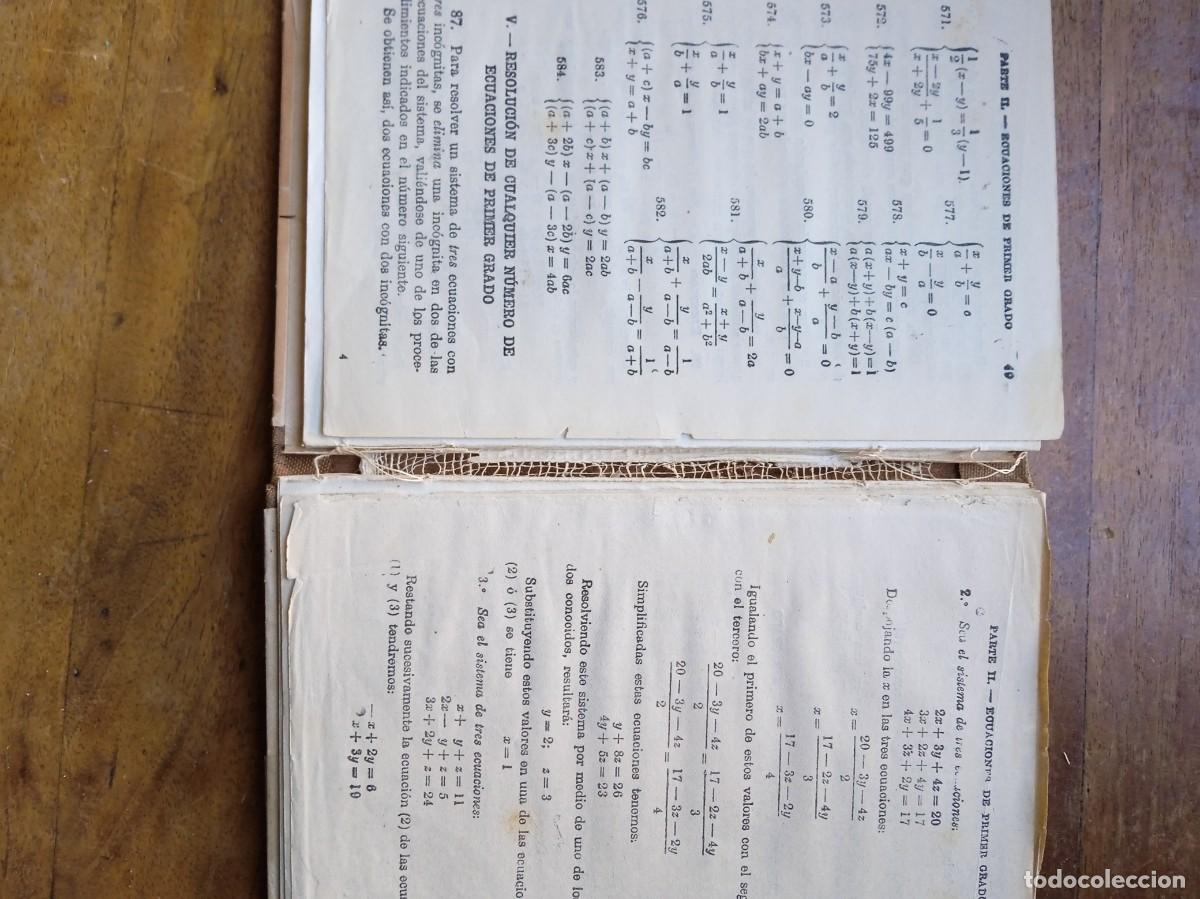 PARTE II. — ECUACIONES DE PRIMER GRADO 49
571. { 1/2 (x — y) = 1/3 (y — 1).
(x — 2y)/(x + 2y) + 1/5 = 0
572. { 4x — 99y = 499
75y + 2x = 125
573. { x/a + y/b = 2
bx — ay = 0
574. { x + y = a + b
bx + ay = 2ab
575. { x/a + y/b = 1
x/b + y/a = 1
576. { (a + c) x — by = bc
x + y = a + b
577. { x/a + y/b = c
x/b — y/a = 0
578. { x + y = c
ax — by = c (a — b)
579. { a (x+y) + b (x—y) = 1
a (x—y) + b (x+y) = 1
580. { (x — a)/b + (y — b)/a = 0
(x+y—b)/a + (x—y—a)/b = 0
581. { x/(a + b) + y/(a — b) = 2a
(x — y)/2ab = (x + y)/(a² + b²)
582. { x/(a+b) + y/(a—b) = 1/(a—b)
x/(a+b) — y/(a—b) = 1/(a+b)
583. { (a + b) x + (a — b) y = 2ab
(a + c) x + (a — c) y = 2ac
584. { (a + 2b) x — (a — 2b) y = 6ac
(a + 3c) y — (a — 3c) x = 4ab
V. — RESOLUCIÓN DE CUALQUIER NÚMERO DE
ECUACIONES DE PRIMER GRADO
87. Para resolver un sistema de tres ecuaciones con
tres incógnitas, se elimina una incógnita en dos de las
ecuaciones del sistema, valiéndose de uno de los proce-
dimientos indicados en el número siguiente.
Se obtienen así, dos ecuaciones con dos incógnitas.
4
PARTE II. — ECUACIONES DE PRIMER GRADO
2.º Sea el sistema de tres ecuaciones:
2x + 3y + 4z = 20
3x + 2z + 4y = 17
4x + 3z + 2y = 17
Despejando la x en las tres ecuaciones:
x = (20 — 3y — 4z)/2
x = (17 — 2z — 4y)/3
x = (17 — 3z — 2y)/4
Igualando el primero de estos valores con el seg
con el tercero:
(20 — 3y — 4z)/2 = (17 — 2z — 4y)/3
(20 — 3y — 4z)/2 = (17 — 3z — 2y)/4
Simplificadas estas ecuaciones tenemos:
y + 8z = 26
4y + 5z = 23
Resolviendo este sistema por medio de uno de lo
dos conocidos, resultará:
y = 2; z = 3
Substituyendo estos valores en una de las ecuacio
(2) ó (3) se tiene x = 1
3.º Sea el sistema de tres ecuaciones:
x + y + z = 11
2x — y + z = 5
3x + 2y + z = 24
Restando sucesivamente la ecuación (2) de las ecua
(1) y (3) tendremos:
— x + 2y = 6
x + 3y = 19
todocoleccion